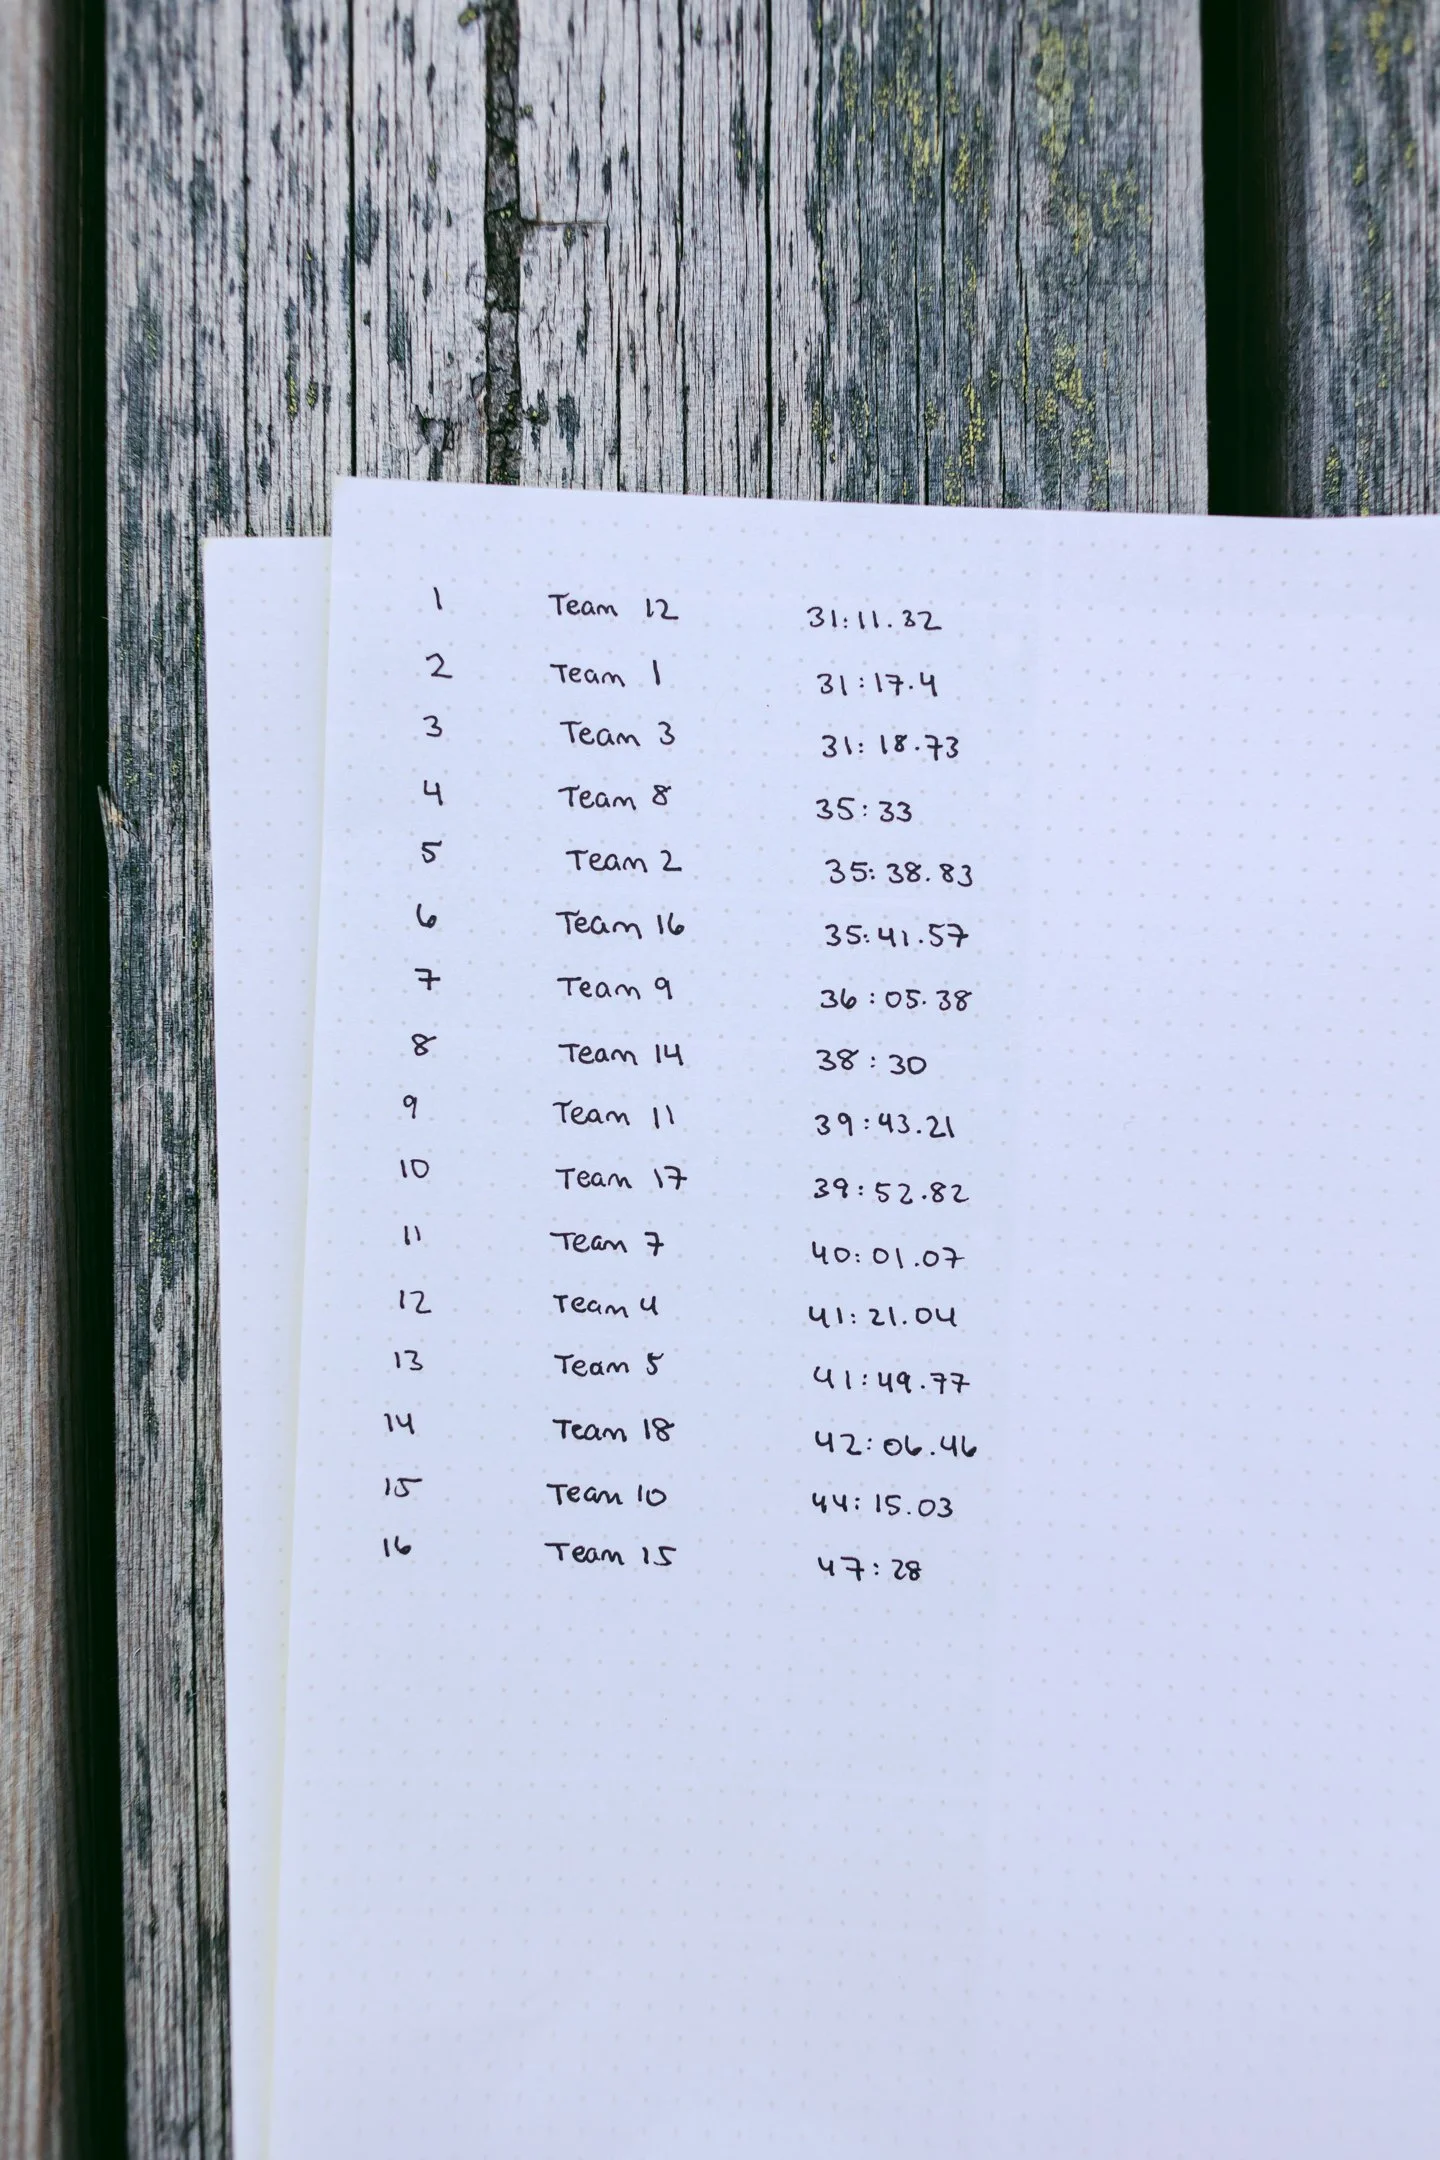 1 Team 12 31:11.32
2 Team 1 31:17.4
3 Team 3 31:18.73
4 Team 8 35:33
5 Team 2 35:38.83
6 Team 16 35:41.57
7 Team 9 36:05.38
8 Team 14 38:30
9 Team 11 39:43.21
10 Team 17 39:52.82
11 Team 7 40:01.07
12 Team 4 41:21.04
13 Team 5 41:49.77
14 Team 18 42:06.46
15 Team 10 44:15.03
16 Team 15 47:28